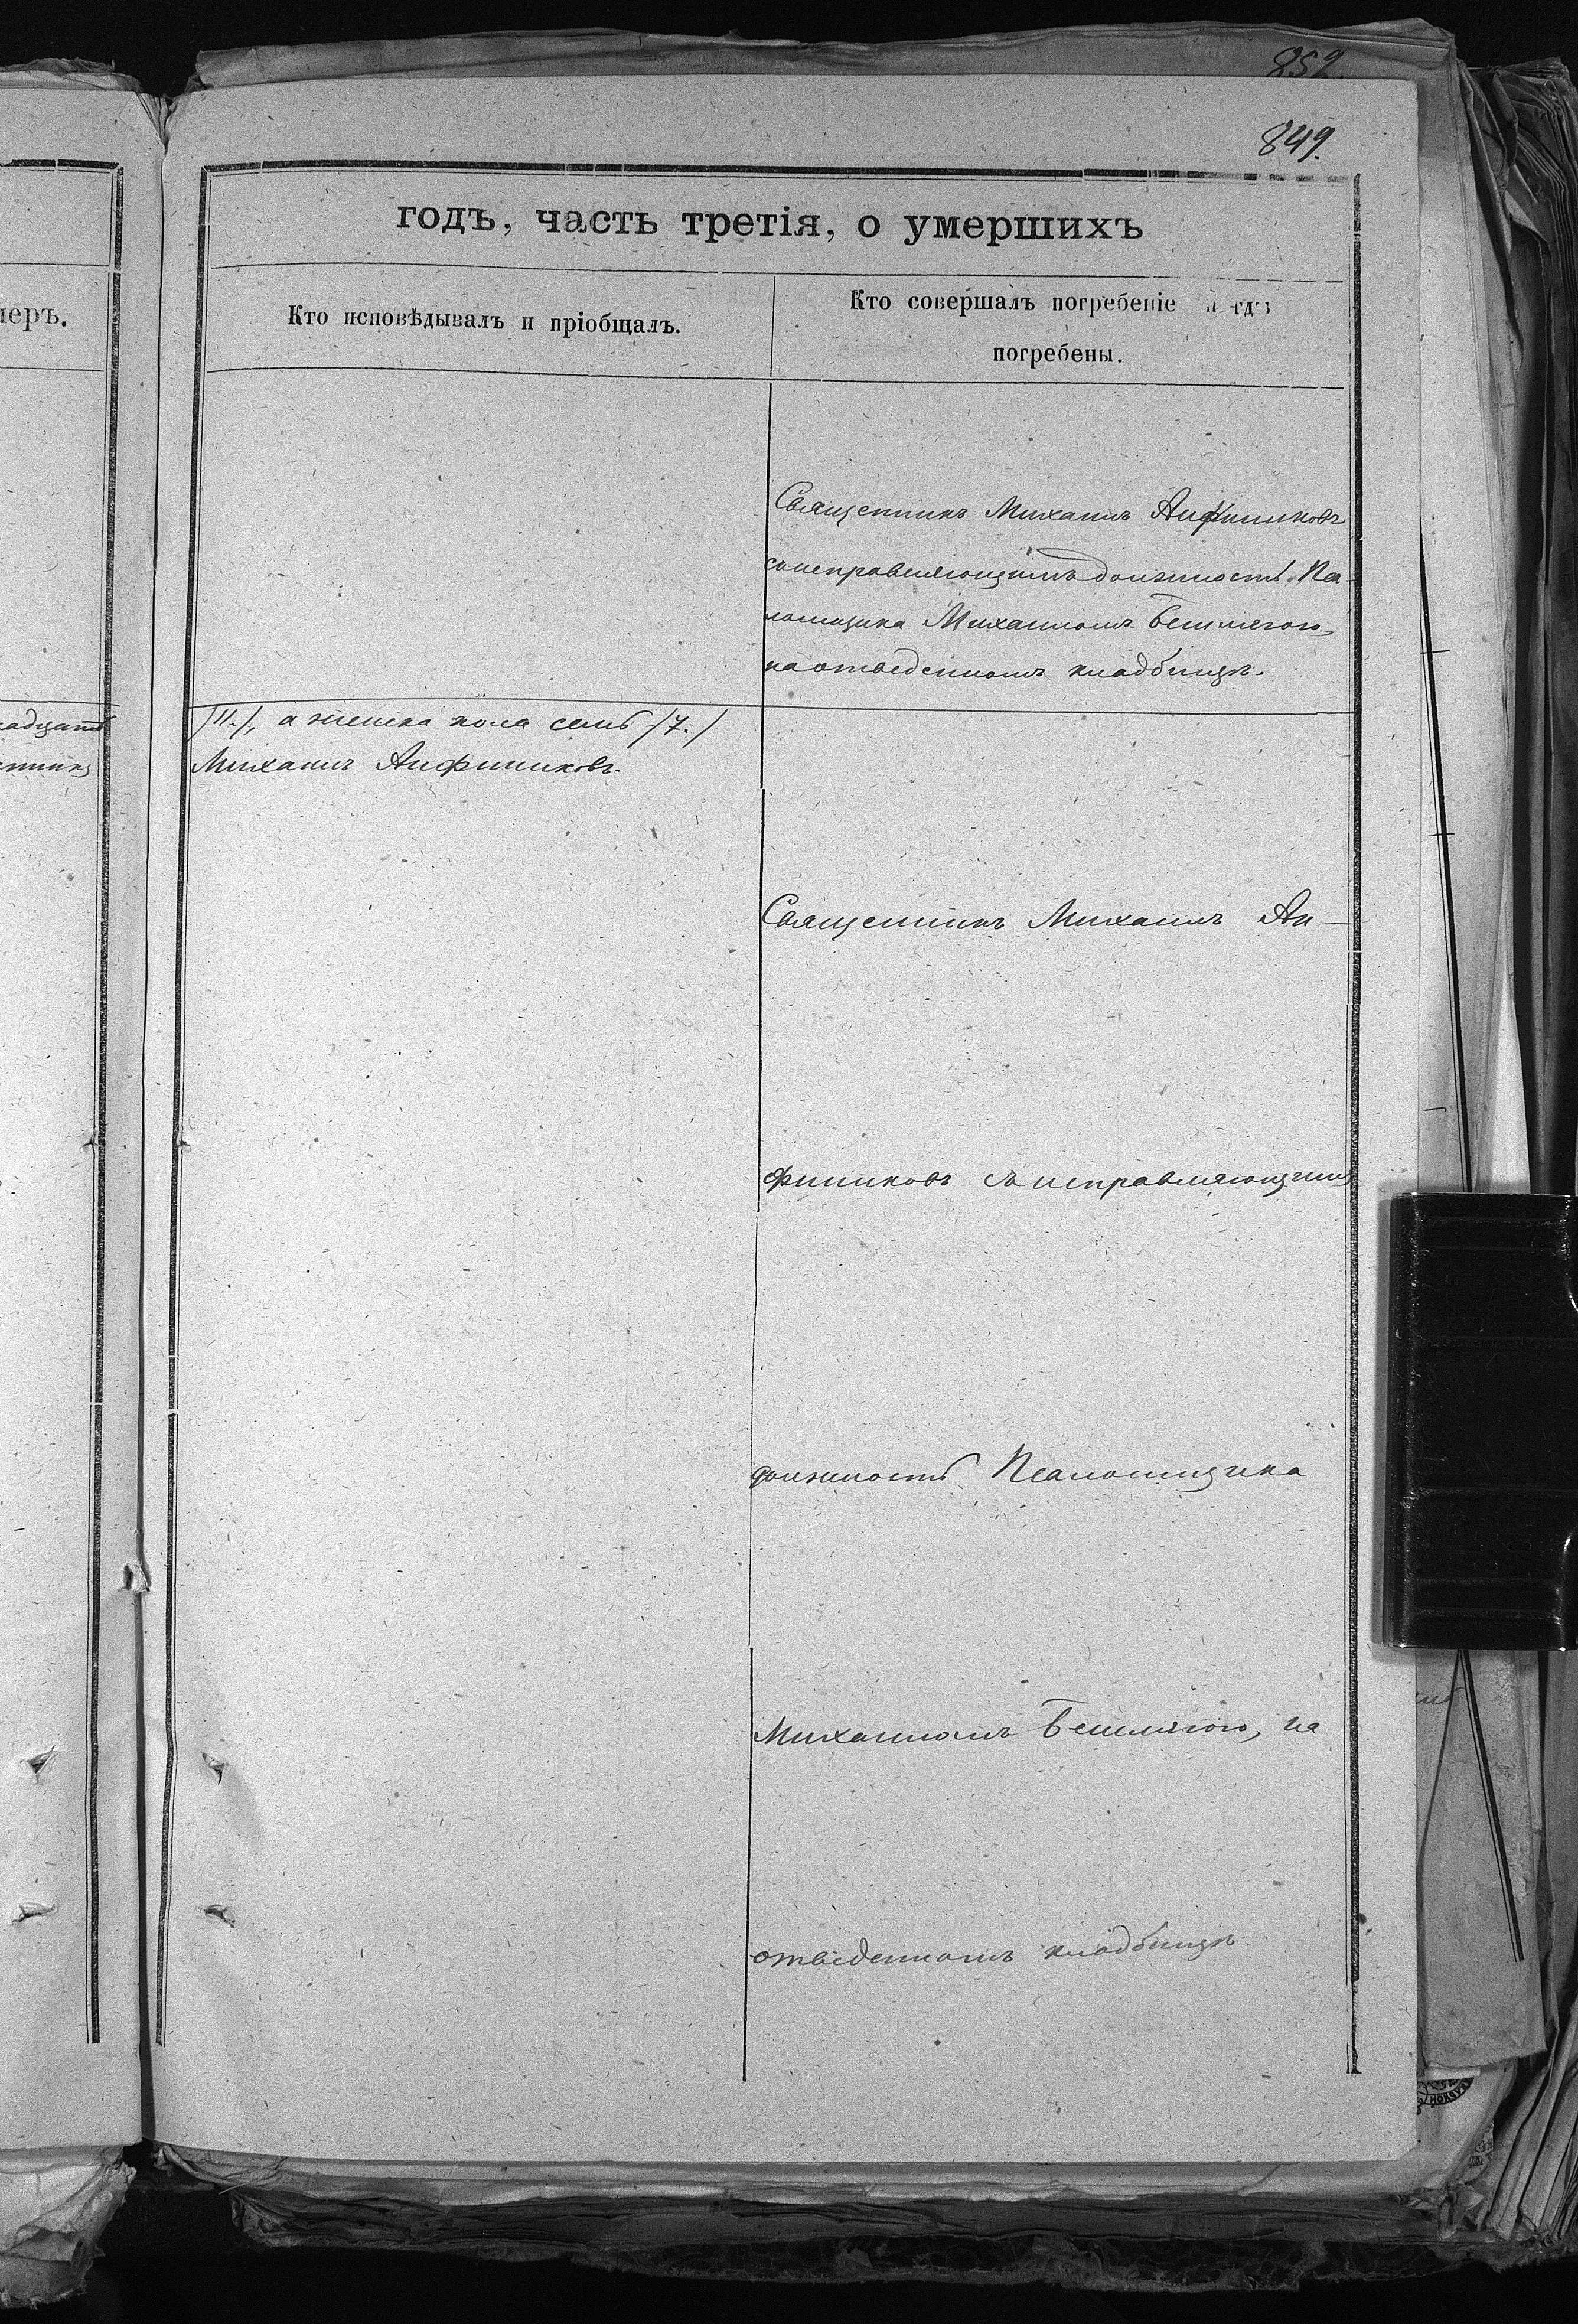 852.
849.
годъ, часть третія, о умершихъ
меръ.
Кто исповѣдывалъ и пріобщалъ.
Кто совершалъ погребеніе и гдѣ
погребены.
Священникъ Михаилъ Анфиниковъ
съ исправляющимъ должность Пса-
ломщика Михаиломъ
на отведенномъ кладбищѣ.
/11./, а женска пола семь /7./
Михаилъ Анфиниковъ.
Священникъ Михаилъ Ан-
финиковъ съ исправляющимъ
должность Псаломщика
Михаиломъ на
отведенномъ кладбищѣ